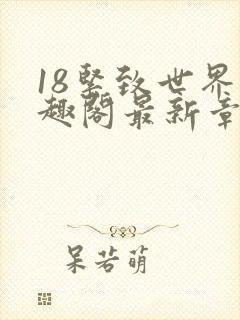 18堅致世界
趣閣最新章
呆若萌